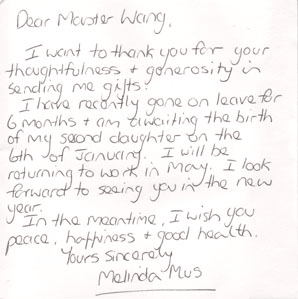 Dear Master Wang,
I want to thank you for your
thoughtfulness + generosity in
sending me gifts.
I have recently gone on leave for
6 months + am awaiting the birth
of my second daughter on the
6th of January. I will be
returning to work in May. I look
forward to seeing you in the new
year.
In the meantime, I wish you
peace, happiness + good health.
Yours sincerely
Melinda Mus